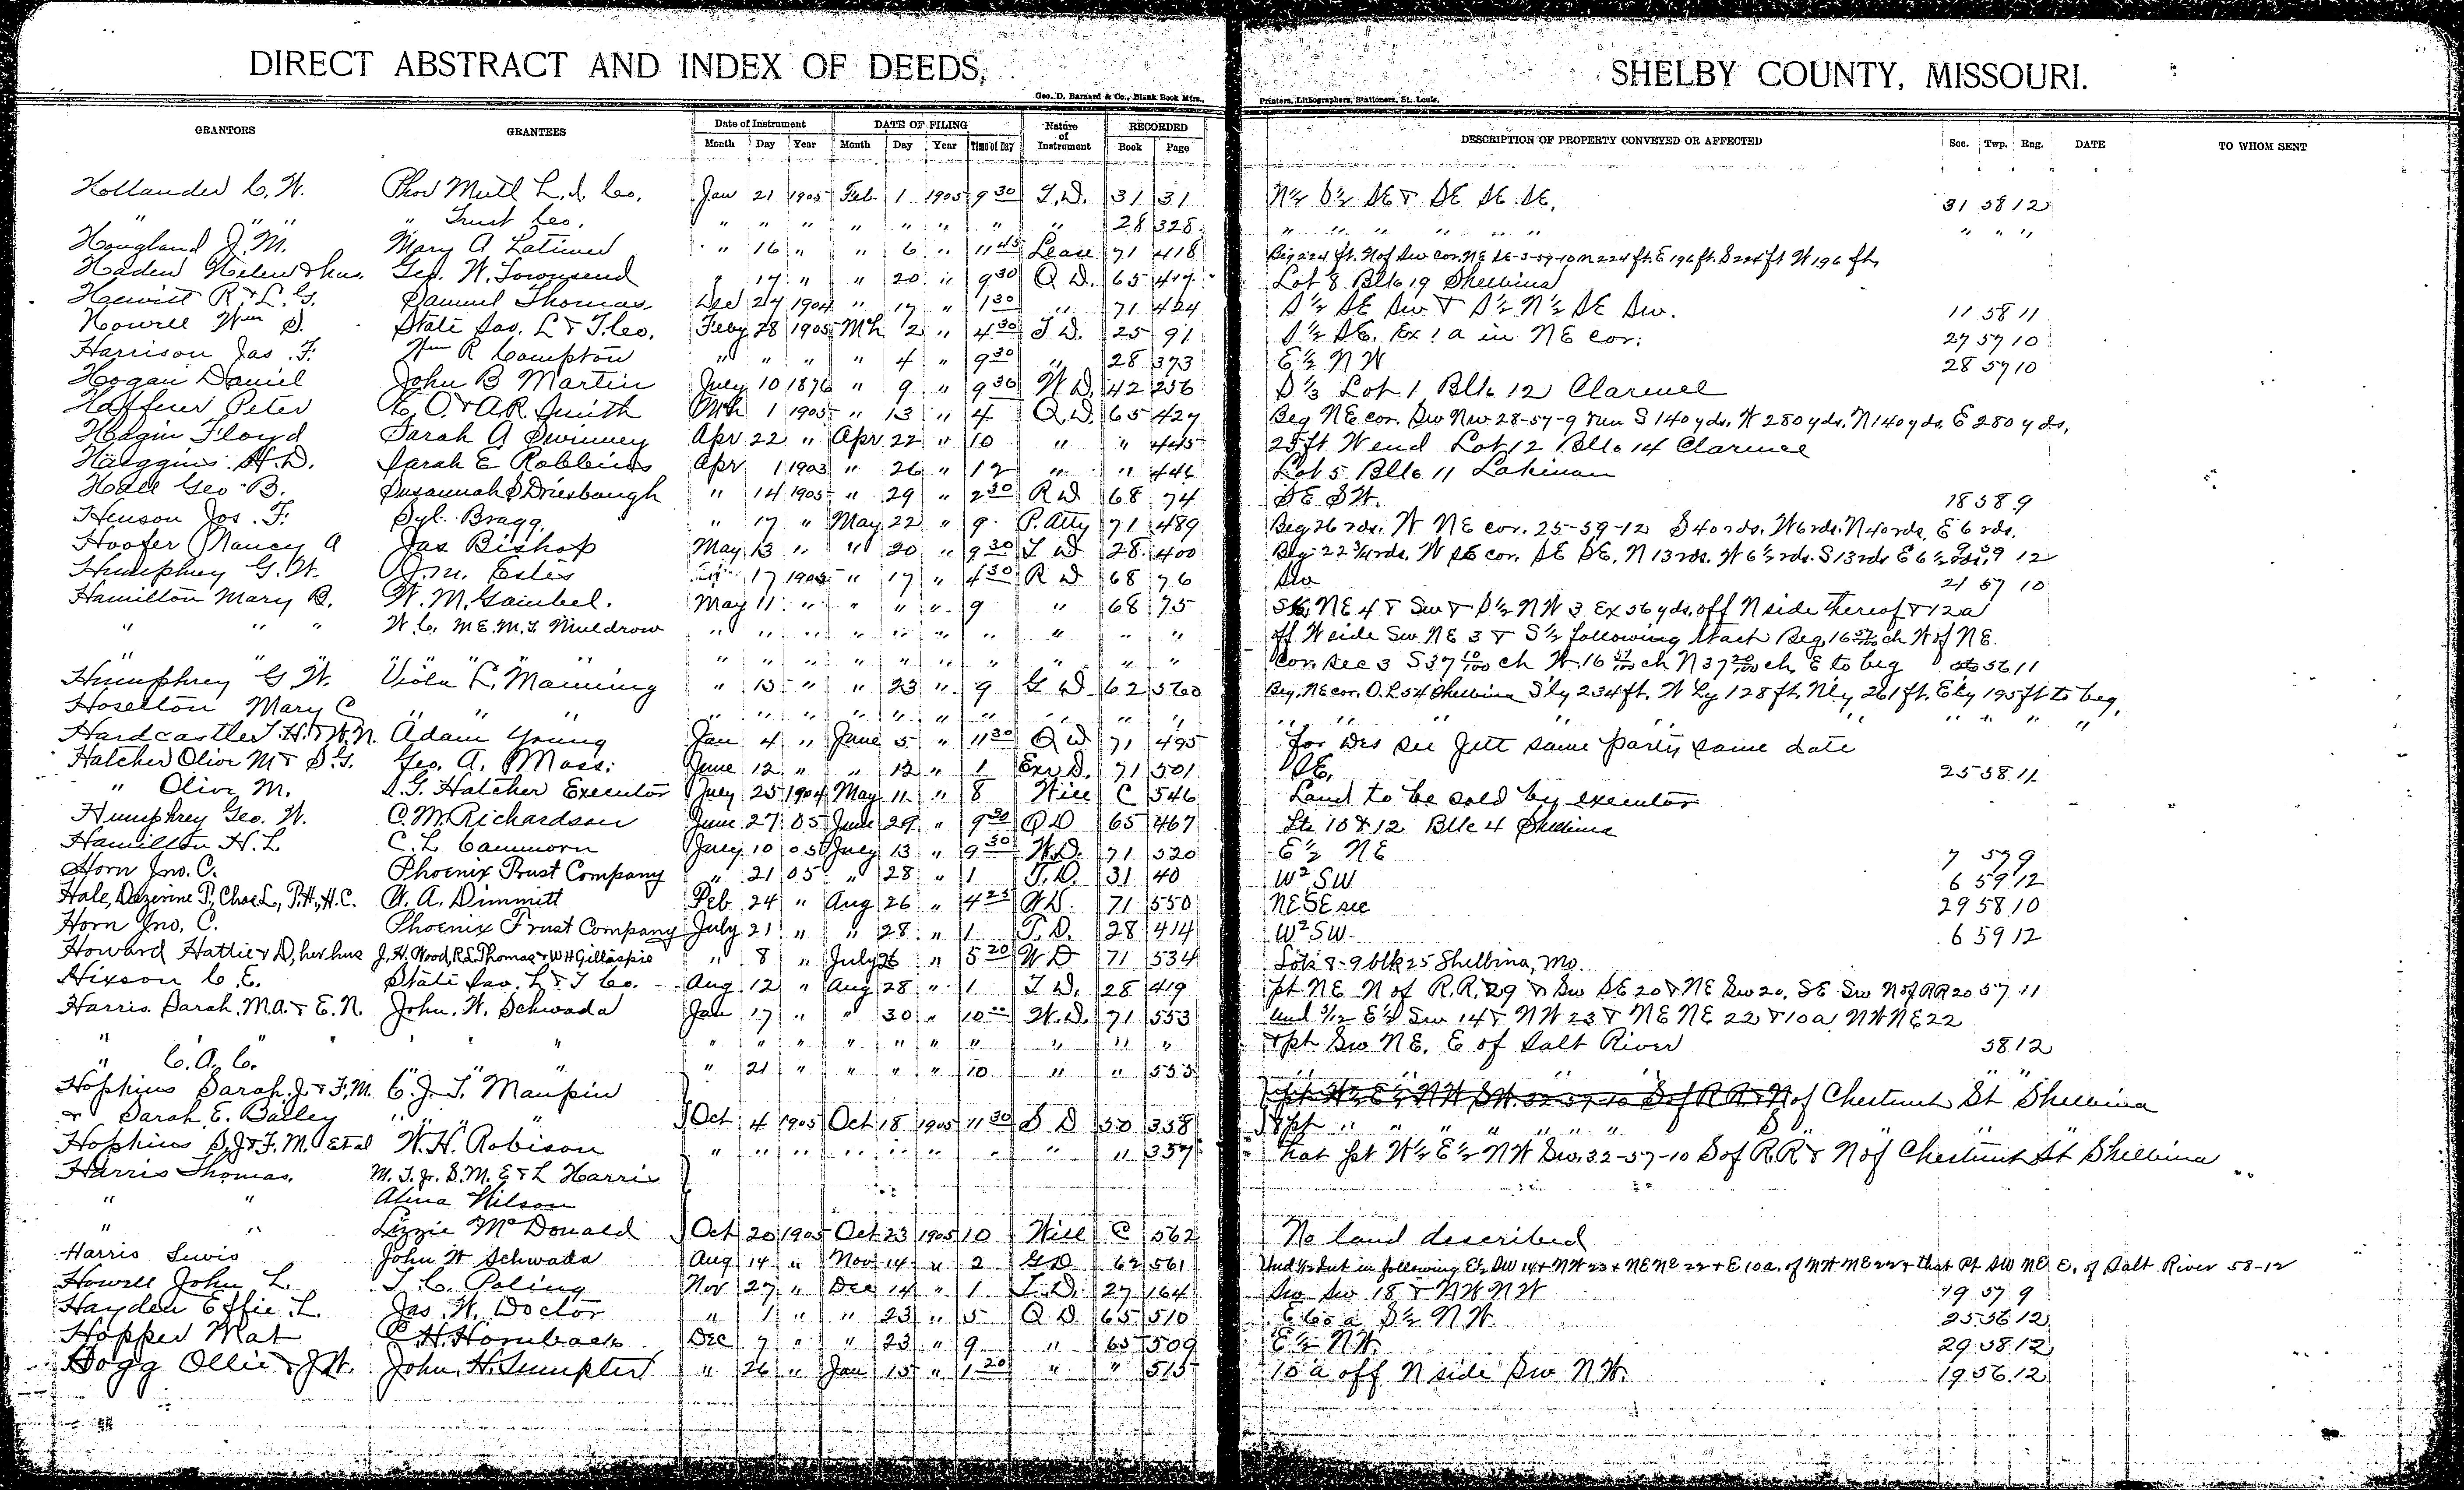 DIRECT ABSTRACT AND INDEX OF DEEDS, SHELBY COUNTY, MISSOURI.
Geo. D. Barnard & Co., Blank Book Mfrs., Printers, Lithographers, Stationers, St. Louis.
GRANTORS GRANTEES Date of Instrument DATE OF FILING Nature of Instrument RECORDED DESCRIPTION OF PROPERTY CONVEYED OR AFFECTED Sec. Twp. Rng. DATE TO WHOM SENT
Month Day Year Month Day Year Time of Day Book Page
Hollander C. W. Phoe Mutl L. I. Co. Jan 21 1905 Feb 1 1905 9 30 T.D. 31 31 N½ S½ SE & SE SE SE. 31 58 12
" " " " Trust Co. " " " " " " " " 28 328 " " " " " " " " "
Hougland J. M. Mary A Latimer " 16 " " 6 " 11 45 Lease 71 418 Beg 224 ft. N of Sw cor. NE SE-5-59-10 N 224 ft. E 196 ft. S 224 ft W 196 ft,
Haden Helen & hus. Geo. W. Townsend " 17 " " 20 " 9 30 Q D. 65 417 Lot 8 Blk 19 Shelbina
R & L. G. Samuel Thomas. Dec 27 1904 " 17 " 1 30 " 71 424 S½ SE Sw & S½ N½ SE Sw. 11 58 11
Howell Wm S. State Sav. L & T. Co. Feby 28 1905 Mch 2 " 4 30 T D. 25 91 S½ SE. Ex 1 a in NE cor. 27 57 10
Harrison Jas. F. Wm R Compton " " " " 4 " 9 30 " 28 373 E½ N W 28 57 10
Hogan Daniel John B Martin July 10 1876 " 9 " 9 30 W D. 42 256 S⅓ Lot 1 Blk 12 Clarence
Haffner Peter C. O. & A. R. Smith Mch 1 1905 " 13 " 4 Q. D. 65 427 Beg NE cor. Sw Nw 28-57-9 run S 140 yds. W 280 yds. N 140 yds. E 280 yds,
Hagin Floyd Sarah A Swinney Apr 22 " Apr 22 " 10 " " 445 25 ft W end Lot 12 Blk 14 Clarence
Haggins H. D. Sarah E Robbins Apr 1 1903 " 26 " 12 " " 446 Lot 5 Blk 11 Lakenan
Hall Geo B. Susannah S Driesbaugh " 14 1905 " 29 " 2 30 R D 68 74 SE SW. 18 58 9
Henson Jos. F. Syl. Bragg. " 17 " May 22 " 9 P. Atty 71 489 Beg 26 rds. W NE cor. 25-59-12 S 40 rds. W 6 rds. N 40 rds. E 6 rds.
Hoofer Nancy A Jas Bishop May 13 " " 20 " 9 30 T D 28 400 Beg. 22¾ rds. W SE cor. SE SE. N 13 rds. W 6½ rds. S 13 rds E 6½ rds, 9 59 12
Humphrey G. W. J. M. Estes 17 1905 " 17 " 4 30 R D 68 76 Sw 21 57 10
Hamilton Mary B. W. M. Gaimbel. May 11 " " " " 9 " 68 75 NE 4 & Sw & S½ NW 3 Ex 56 yds. off N side thereof & 12 a
" " " W. C. M E. M. T. Muldrow " " " " " " " " " " off W side Sw NE 3 & S½ following tract Beg. 16 57/100 ch W of NE.
" " " " " " " " " " " " " " " " cor. sec 3 S 37 10/100 ch W. 16 57/100 ch N 37 20/100 ch. E to beg 56 11
Humphrey G W. Viola L. Manning " 15 " " 23 " 9 G D. 62 560 Beg. NE cor. O. L 54 Shelbina S'ly 234 ft. W'ly 128 ft. N'ly 261 ft. E'ly 195 ft to beg.
Hoselton Mary C " " " " " " " " " " " " " " " " " " "
Hardcastle T. H. & W. N. Adam Young Jan 4 " June 5 " 11 30 Q D 71 495 for Des see Jett same party same date
Hatcher Olive M & S. G. Geo. A. Moss. June 12 " " 12 " 1 Exr D. 71 501 SE. 25 58 11
" Olive M. S. G. Hatcher Executor July 25 1904 May 11 " 8 Will C 546 Land to be sold by executor
Humphrey Geo. W. C. M. Richardson June 27 05 June 29 " 9 30 Q D 65 467 Lts 10 & 12 Blk 4 Shelbina
Hamilton H. L. C. L Cammorn July 10 05 July 13 " 9 30 W. D. 71 520 E½ NE 7 57 9
Horn Jno. C. Phoenix Trust Company " 21 05 " 28 " 1 T. D. 31 40 W2 SW 6 59 12
Hale, P., Chas L., P. H., H. C. W. A. Dimmitt Feb 24 " Aug 26 " 4 25 W D. 71 550 NE SE sec 29 58 10
Horn Jno. C. Phoenix Trust Company July 21 " " 28 " 1 T. D. 28 414 W2 SW 6 59 12
Howard Hattie & D, her hus J. H. Wood, R. L. Thomas & W H Gillaspie " 8 " July 26 " 5 20 W D 71 534 Lots 8-9 blk 25 Shelbina, Mo.
Hixson C. E. State Sav. L & T Co. Aug 12 " Aug 28 " 1 T D. 28 419 pt NE N of R.R. 29 & Sw SE 20 & NE Sw 20. SE Sw N of RR 20 57 11
Harris Sarah. M. A. & E. N. John. W. Schwada Jan 17 " " 30 " 10 W. D. 71 553 Und 5/12 E½ Sw 14 & NW 23 & NE NE 22 & 10 a NW NE 22
" " " " " " " " " " " " " " & pt Sw NE. E of Salt River 58 12
" C. A. C. " " " 21 " " " " 10 " " 553 " " " "
Hopkins Sarah. J. & F. M. C. J. T. Maupin N of Chestnut St Shelbina
& Sarah E. Bailey " " " Oct 4 1905 Oct 18 1905 11 30 S D 50 358 pt " " " " " " " S "
Hopkins S. J & F. M. et al W. H. Robison " " " " " " " " " 357 that pt W½ E½ NW Sw. 32-57-10 S of R.R & N of Chestnut St Shelbina
Harris Thomas. M. T. Jr. S. M. E & L Harris
" " Alma Wilson
" " Lizzie McDonald Oct 20 1905 Oct 23 1905 10 Will C 562 No land described
Harris Lewis John W Schwada Aug 14 " Nov 14 " 2 G D 62 561 Und ½ Int in following E½ SW 14 & NW 23 & NE NE 22 & E 10 a. of NW NE 22 & that Pt SW NE E. of Salt River 58-12
Howell John L. T. C. Poling Nov 27 " Dec 14 " 1 T. D. 27 164 Sw Sw 18 & NW NW 19 57 9
Hayden Effie L. Jas. W. Doctor " 1 " " 23 " 5 Q D 65 510 E 60 a S½ NW. 25 56 12
Hopper Mat C H. Hornback Dec 7 " " 23 " 9 " 65 509 E½ NW. 29 58 12
Hogg Ollie & J. W. John. H. Sumpter " 26 " Jan 15 " 1 20 " " 515 10 a off N side Sw NW. 19 56 12